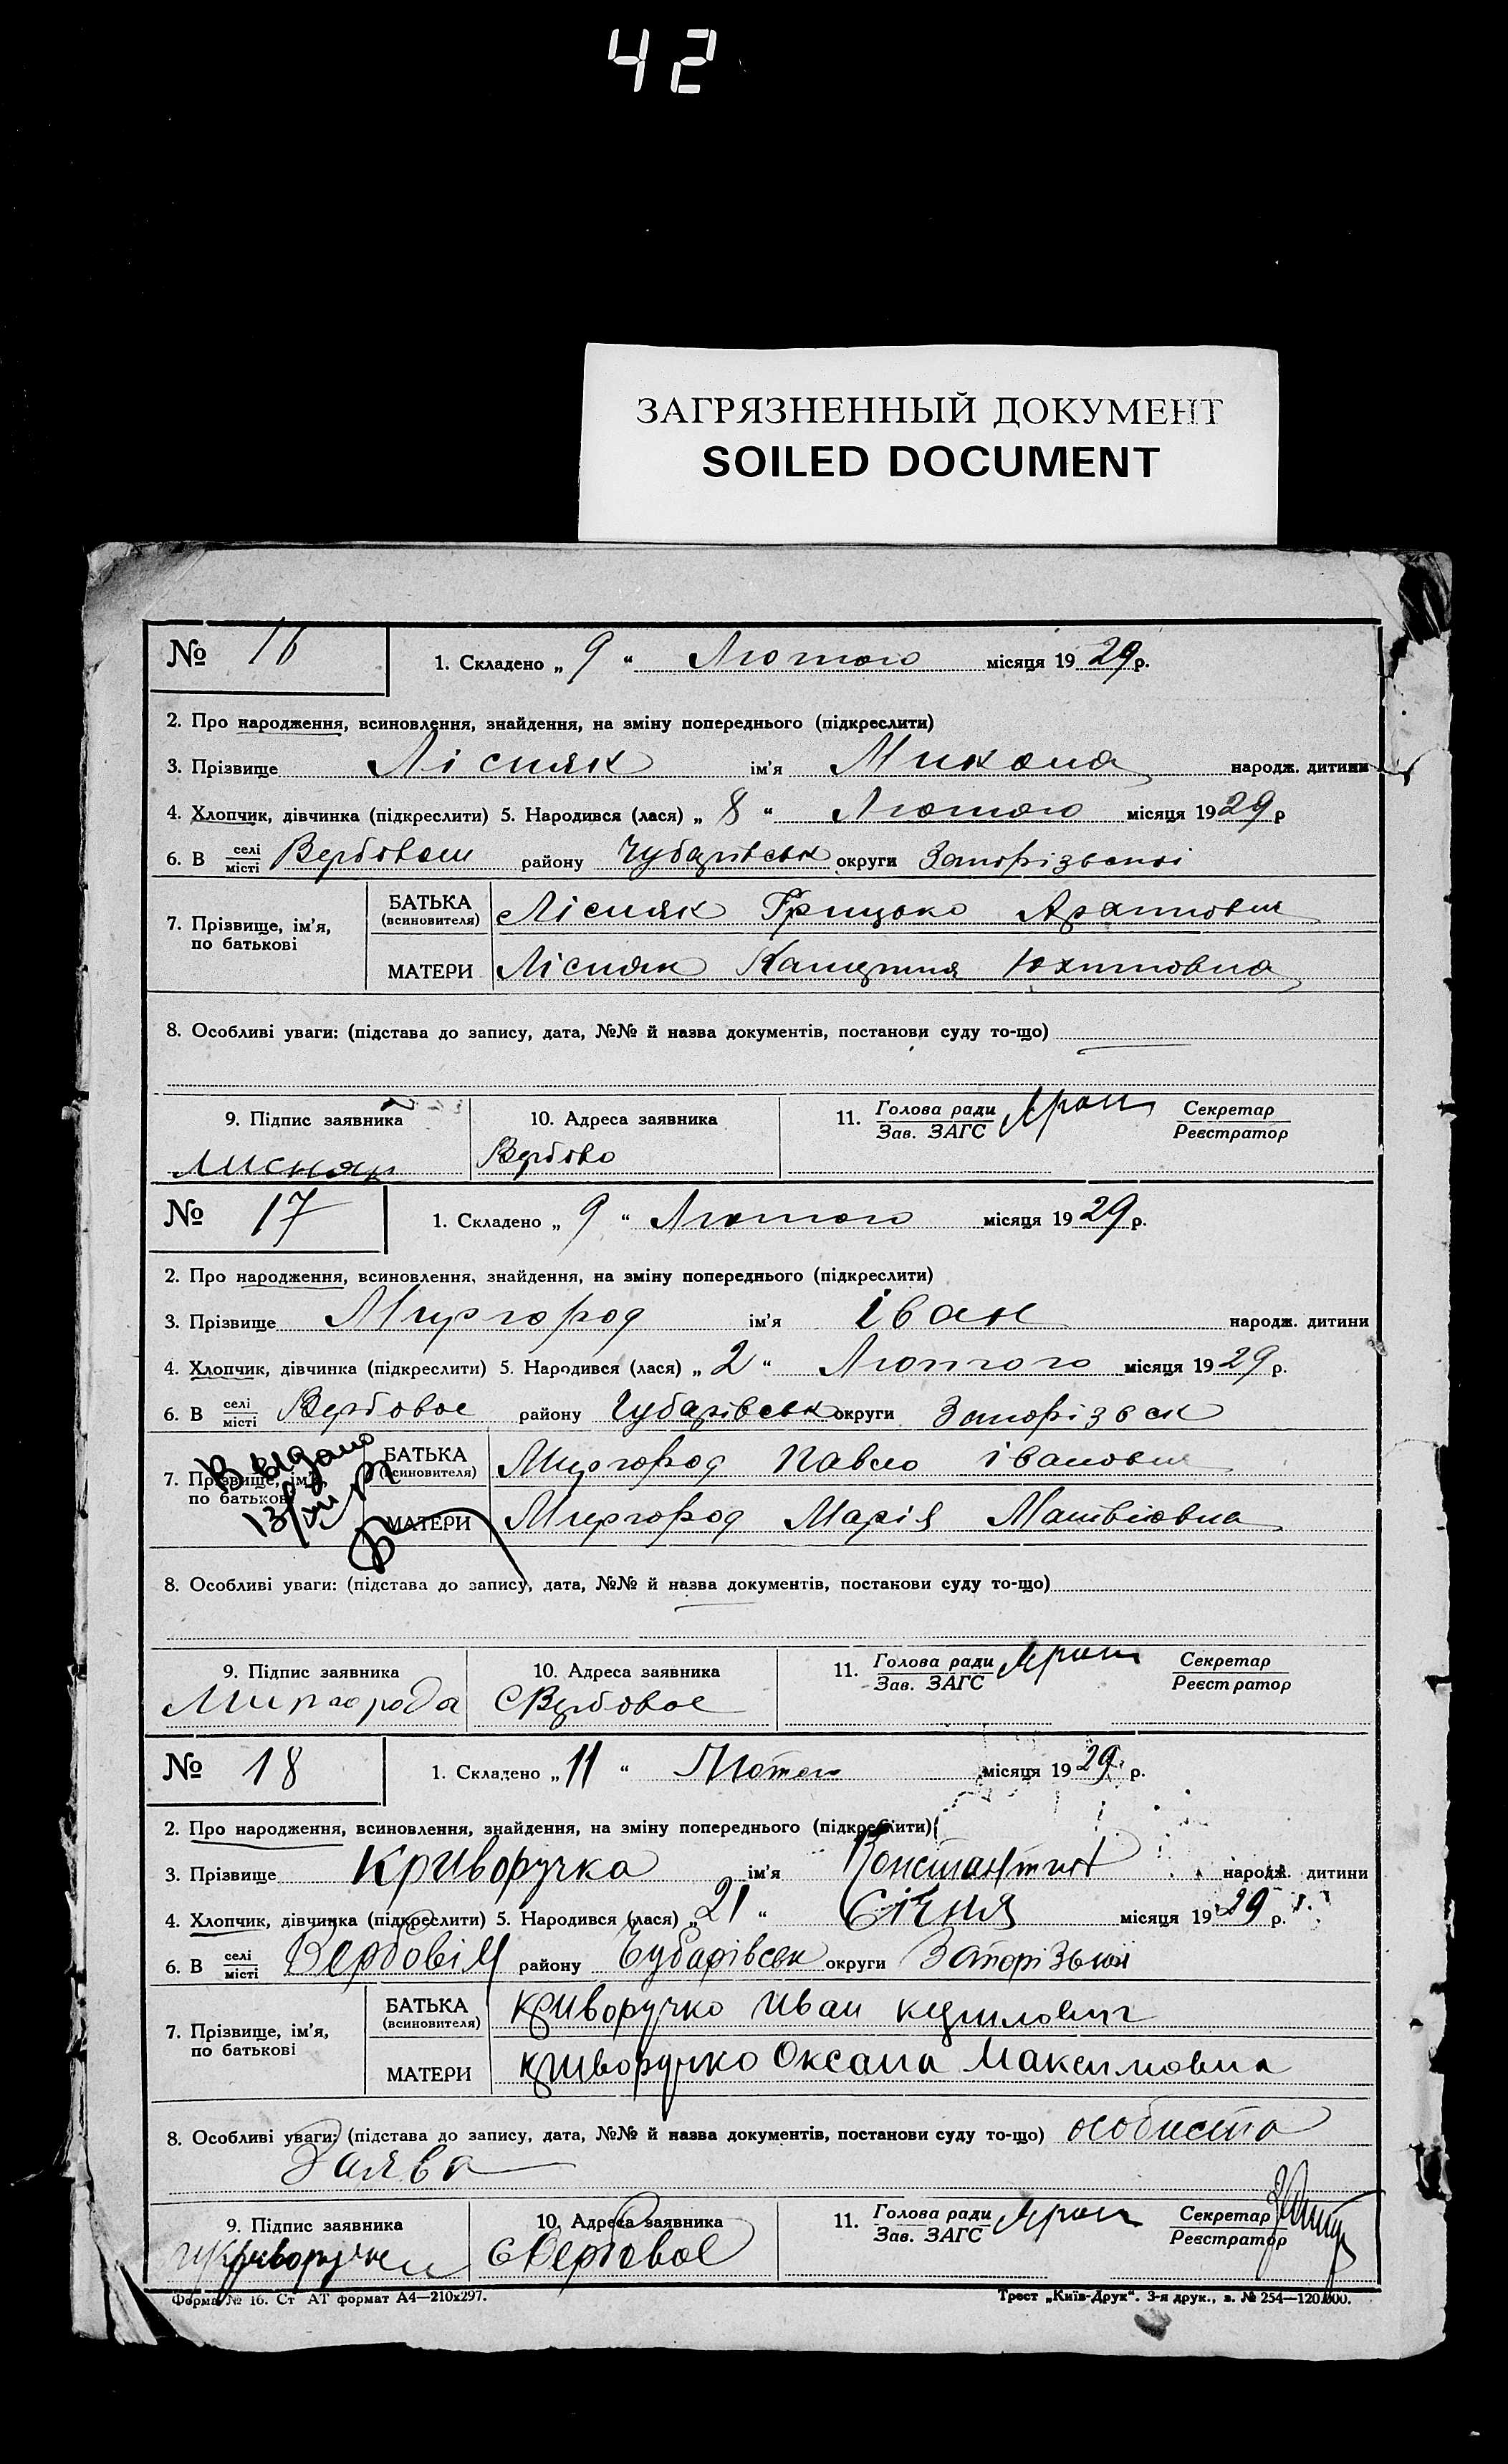 42
ЗАГРЯЗНЕННЫЙ ДОКУМЕНТ
SOILED DOCUMENT
№ 16
1. Складено „ 9 “ Лютого місяця 1929 р.
2. Про народження, всиновлення, знайдення, на зміну попереднього (підкреслити)
3. Прізвище Лісняк ім'я Микола народж. дитини
4. Хлопчик, дівчинка (підкреслити) 5. Народився (лася) „ 8 “ Лютого місяця 1929 р
6. В селі місті Вербовом району Чубарівськ округи Запорізької
7. Прізвище, ім'я, по батькові
БАТЬКА (всиновителя) Лісняк Грицько
МАТЕРИ Лісняк Юхимовна
8. Особливі уваги: (підстава до запису, дата, №№ й назва документів, постанови суду то-що)
9. Підпис заявника 10. Адреса заявника 11. Голова ради Зав. ЗАГС Секретар Реєстратор
Лисняк Вербово
№ 17
1. Складено „ 9 “ Лютого місяця 1929 р.
2. Про народження, всиновлення, знайдення, на зміну попереднього (підкреслити)
3. Прізвище Миргород ім'я Іван народж. дитини
4. Хлопчик, дівчинка (підкреслити) 5. Народився (лася) „ 2 “ Лютого місяця 1929 р.
6. В селі місті Вербовое району Чубарівськ округи Запорізск
Выдано
7. Прізвище, ім'я, по батькові
БАТЬКА (всиновителя) Миргород Павло Іванович
МАТЕРИ Миргород Марія Матвіовна
8. Особливі уваги: (підстава до запису, дата, №№ й назва документів, постанови суду то-що)
9. Підпис заявника 10. Адреса заявника 11. Голова ради Зав. ЗАГС Секретар Реєстратор
Миргорода С Вербовое
№ 18
1. Складено „ 11 “ місяця 1929 р.
2. Про народження, всиновлення, знайдення, на зміну попереднього (підкреслити)
3. Прізвище Криворучка ім'я Константин народж. дитини
4. Хлопчик, дівчинка (підкреслити) 5. Народився (лася) „ 21 “ Січня місяця 1929 р.
6. В селі місті Вербовім району Чубарівськ округи Запорізької
7. Прізвище, ім'я, по батькові
БАТЬКА (всиновителя) Криворучко Иван
МАТЕРИ Криворучко Оксана Максимовна
8. Особливі уваги: (підстава до запису, дата, №№ й назва документів, постанови суду то-що) особиста
Заява
9. Підпис заявника 10. Адреса заявника 11. Голова ради Зав. ЗАГС Секретар Реєстратор
С Вербовое
Форма № 16. Ст АТ формат А4—210х297.
Трест „Київ-Друк“. 3-я друк., з. № 254—120.000.